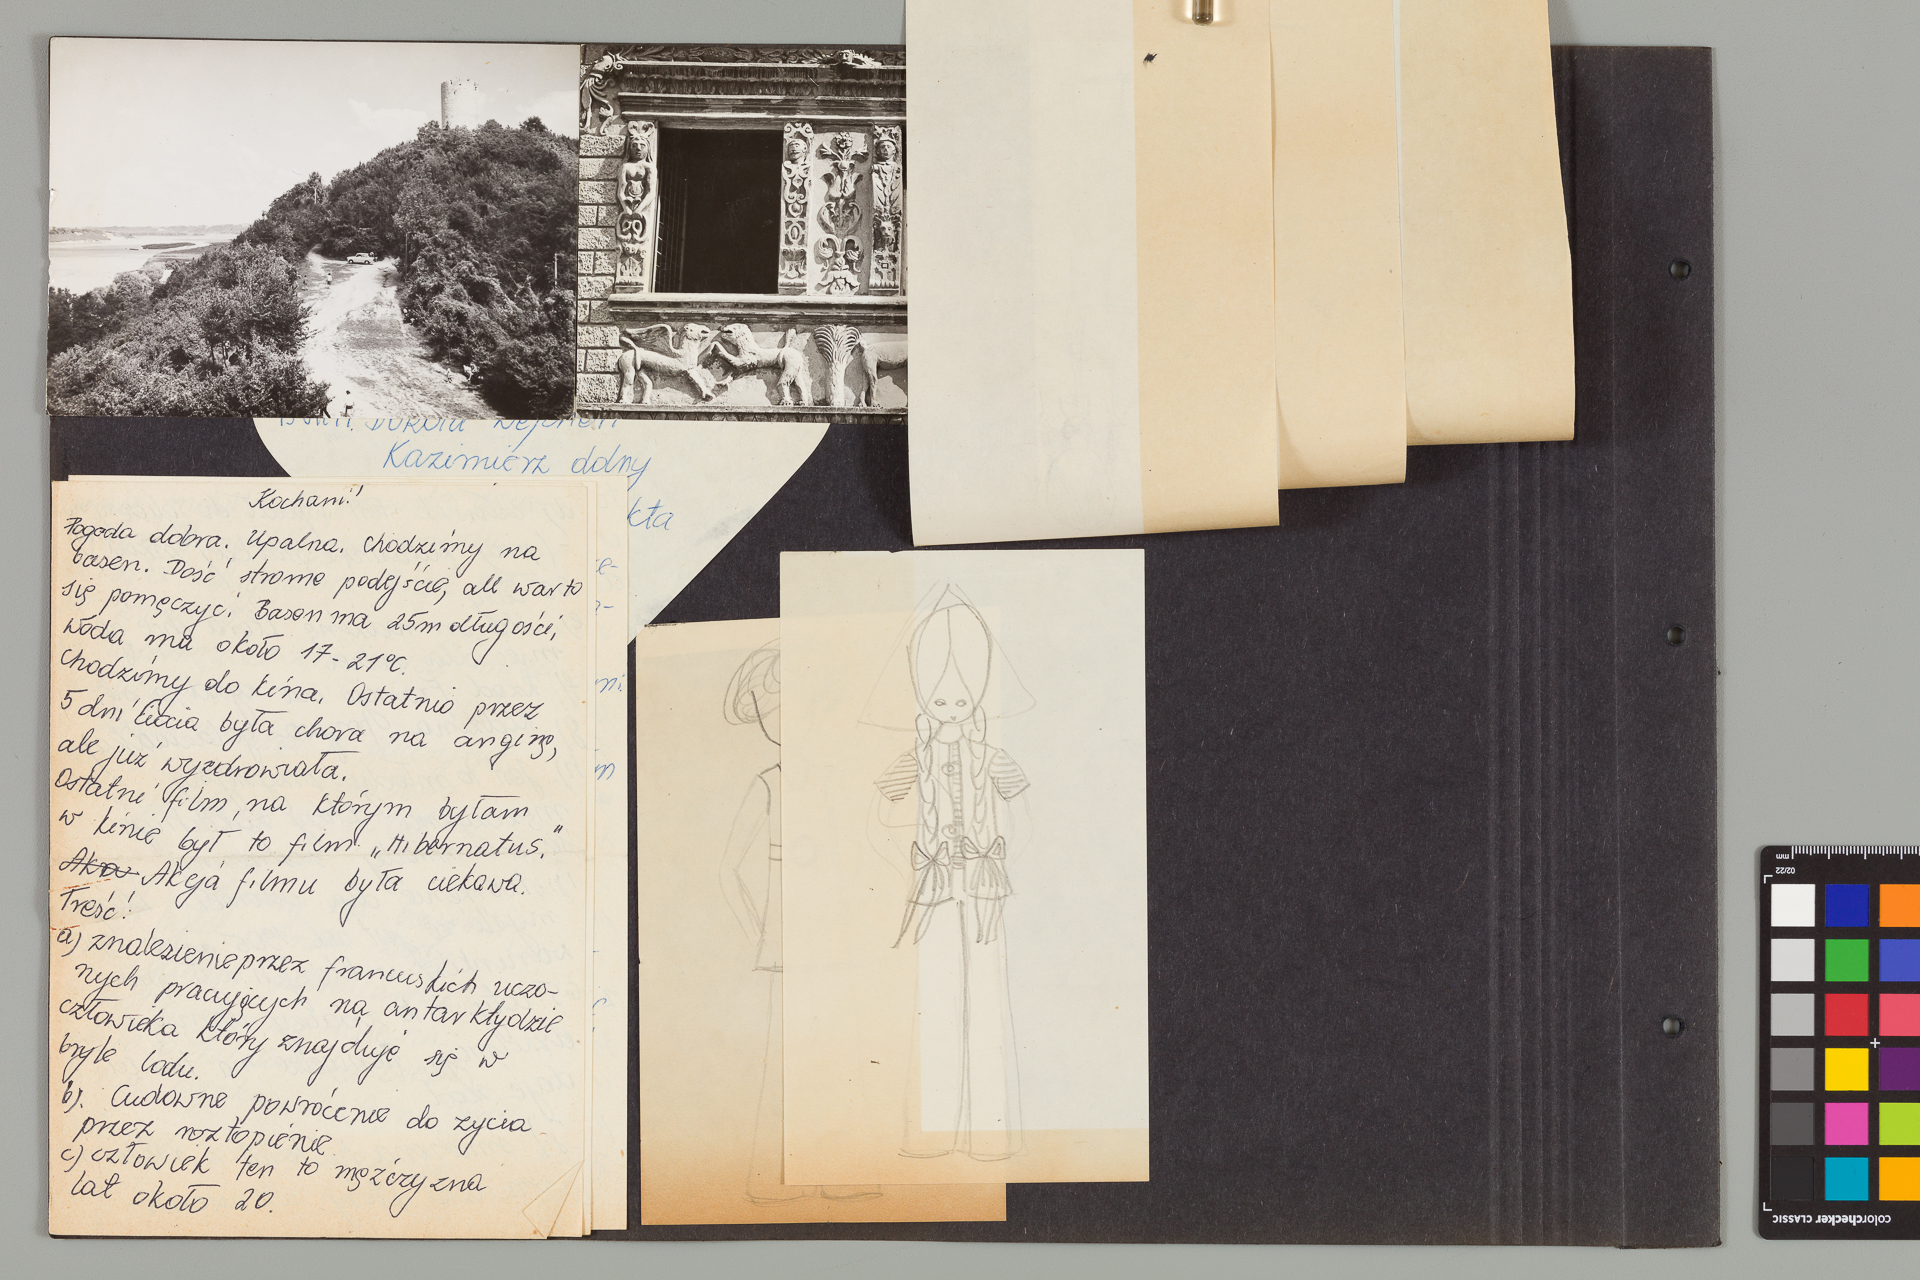 Dorota
Kazimierz dolny
kta
Kochani!
Pogoda dobra. Upalna. Chodzimy na
basen. Dość strome podejście, ale warto
się pomęczyć. Basen ma 25m długości,
woda ma około 17-21°C.
Chodzimy do kina. Ostatnio przez
5 dni była chora na anginę,
ale już wyzdrowiała.
Ostatni film, na którym byłam
w kinie był to film „Hibernatus."
Akcja filmu była ciekawa.
Treść!
a) znalezienie przez francuskich uczo-
nych pracujących na antarktydzie
człowieka który znajduje się w
bryle lodu.
b). Cudowne powrócenie do życia
przez roztopienie
c) człowiek ten to mężczyzna
lat około 20.
mm
02/22
colorchecker CLASSIC